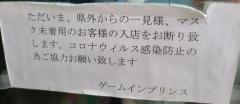 ただいま、県外からの一見様、マス
ク未着用のお客様の入店をお断り致
します。コロナウイルス感染防止の
為ご協力お願い致します
ゲームインプリンス